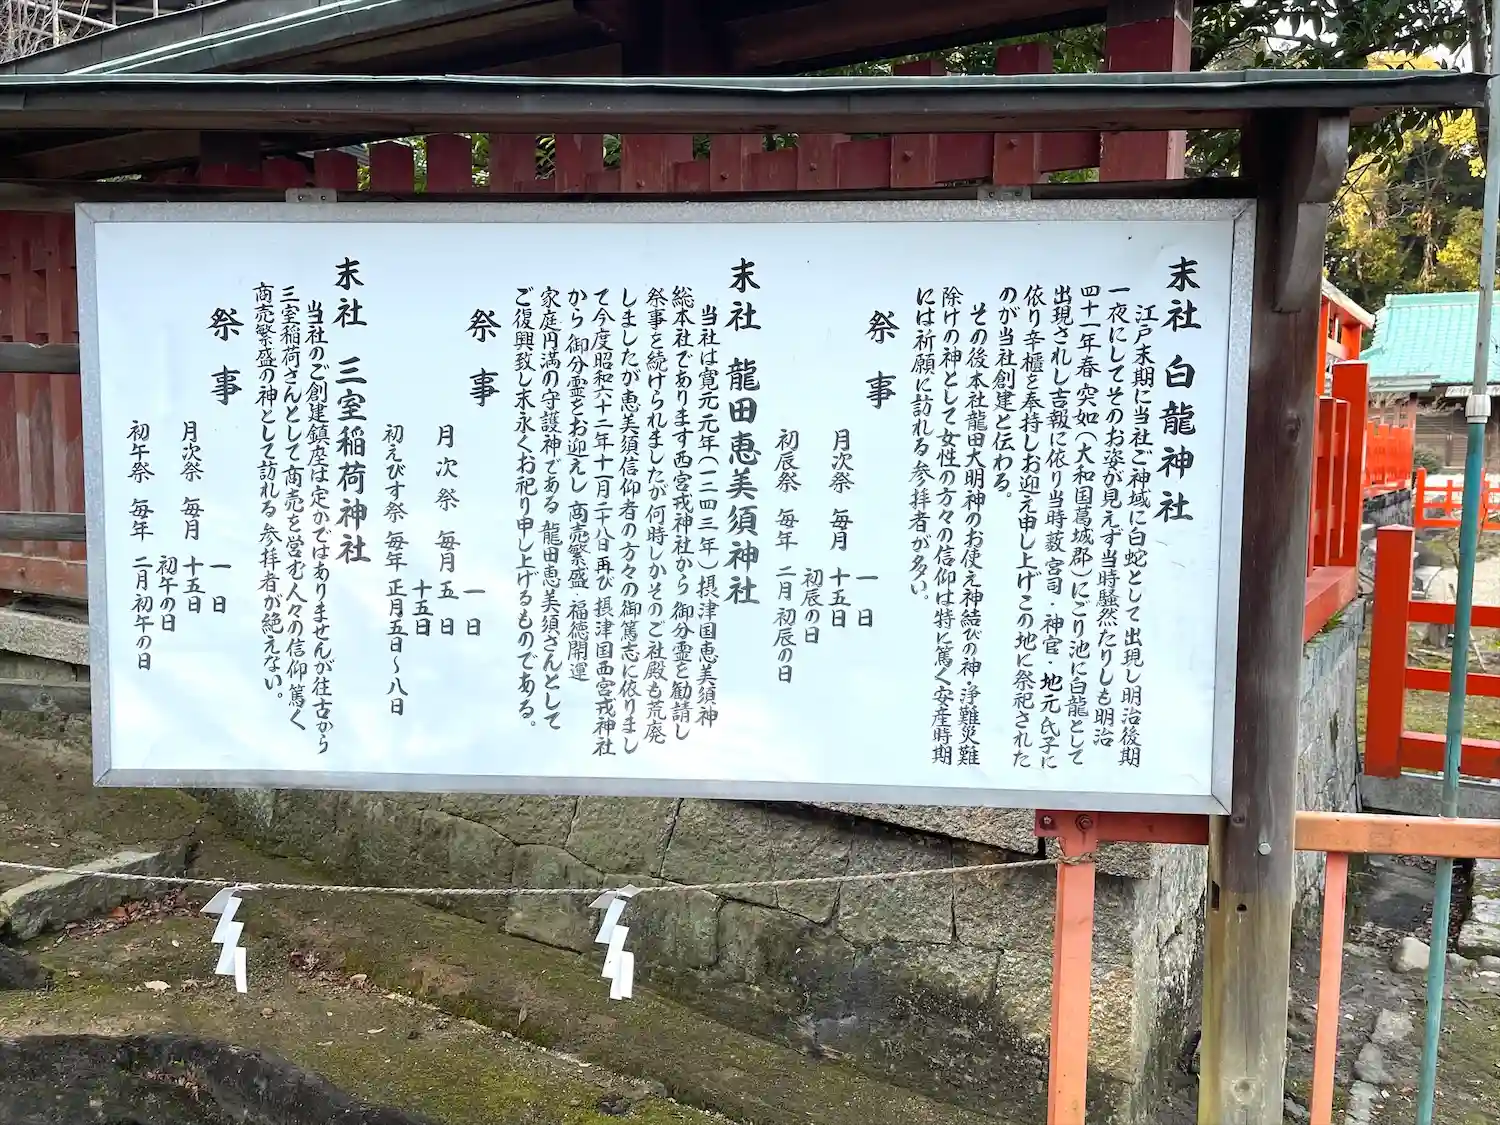 末社 白龍神社
江戸末期に当社ご神域に白蛇として出現し明治後期
一夜にしてそのお姿が見えず当時騒然たりしも明治
四十一年春、突如(大和国葛城郡)にごり池に白龍として
出現されし吉報に依り当時薮宮司・神官・地元氏子に
依り辛櫃を奉持しお迎え申し上げこの地に祭祀された
のが当社創建と伝わる。
その後本社龍田大明神のお使え神結びの神・浄難災難
除けの神として女性の方々の信仰は特に篤く安産時期
には祈願に訪れる参拝者が多い。
祭事
月次祭 毎月 一日
十五日
初辰の日
初辰祭 毎年 二月初辰の日
末社 龍田恵美須神社
当社は寛元元年(一二四三年)摂津国恵美須神
総本社であります西宮戎神社から御分霊を勧請し
祭事を続けられましたが何時しかそのご社殿も荒廃
しましたが恵美須信仰者の方々の御篤志に依りまし
て今度昭和六十二年十一月二十八日再び摂津国西宮戎神社
から御分霊をお迎えし 商売繁盛・福徳開運
家庭円満の守護神である 龍田恵美須さんとして
ご復興致し末永くお祀り申し上げるものである。
祭事
月次祭 毎月 一日
五日
十五日
初えびす祭 毎年 正月五日〜八日
末社 三室稲荷神社
当社のご創建鎮座は定かではありませんが往古から
三室稲荷さんとして商売を営む人々の信仰篤く
商売繁盛の神として訪れる参拝者が絶えない。
祭事
月次祭 毎月 一日
十五日
初午の日
初午祭 毎年 二月初午の日